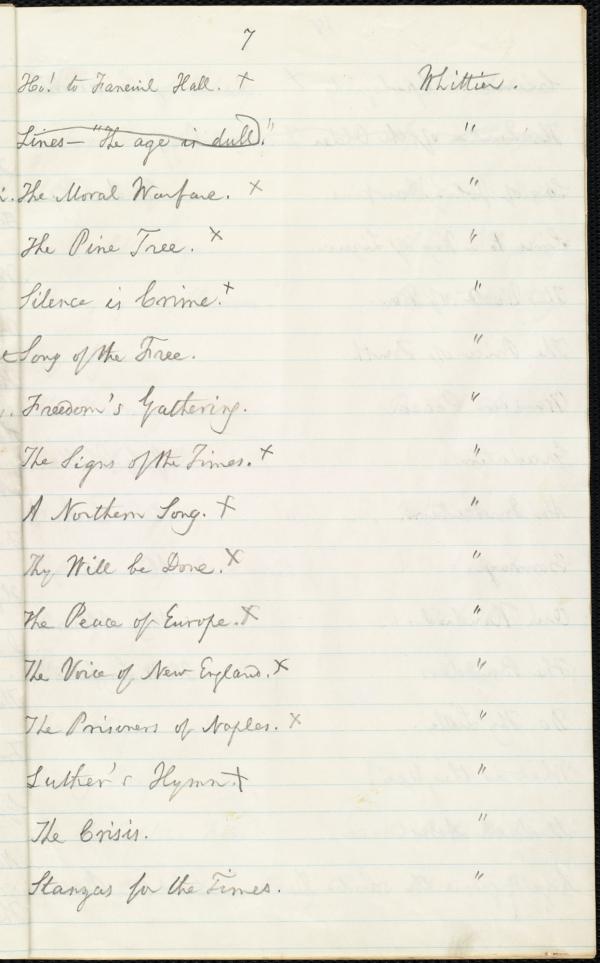 7
Ho! to Faneuil Hall. x Whittier.
Lines — "The age is dull." "
The Moral Warfare. x "
The Pine Tree. x "
Silence is Crime. x "
Song of the Free. "
Freedom's Gathering. "
The Signs of the Times. x "
A Northern Song. x "
Thy Will be Done. x "
The Peace of Europe. x "
The Voice of New England. x "
The Prisoners of Naples. x "
Luther's Hymn. x "
The Crisis. "
Stanzas for the Times. "